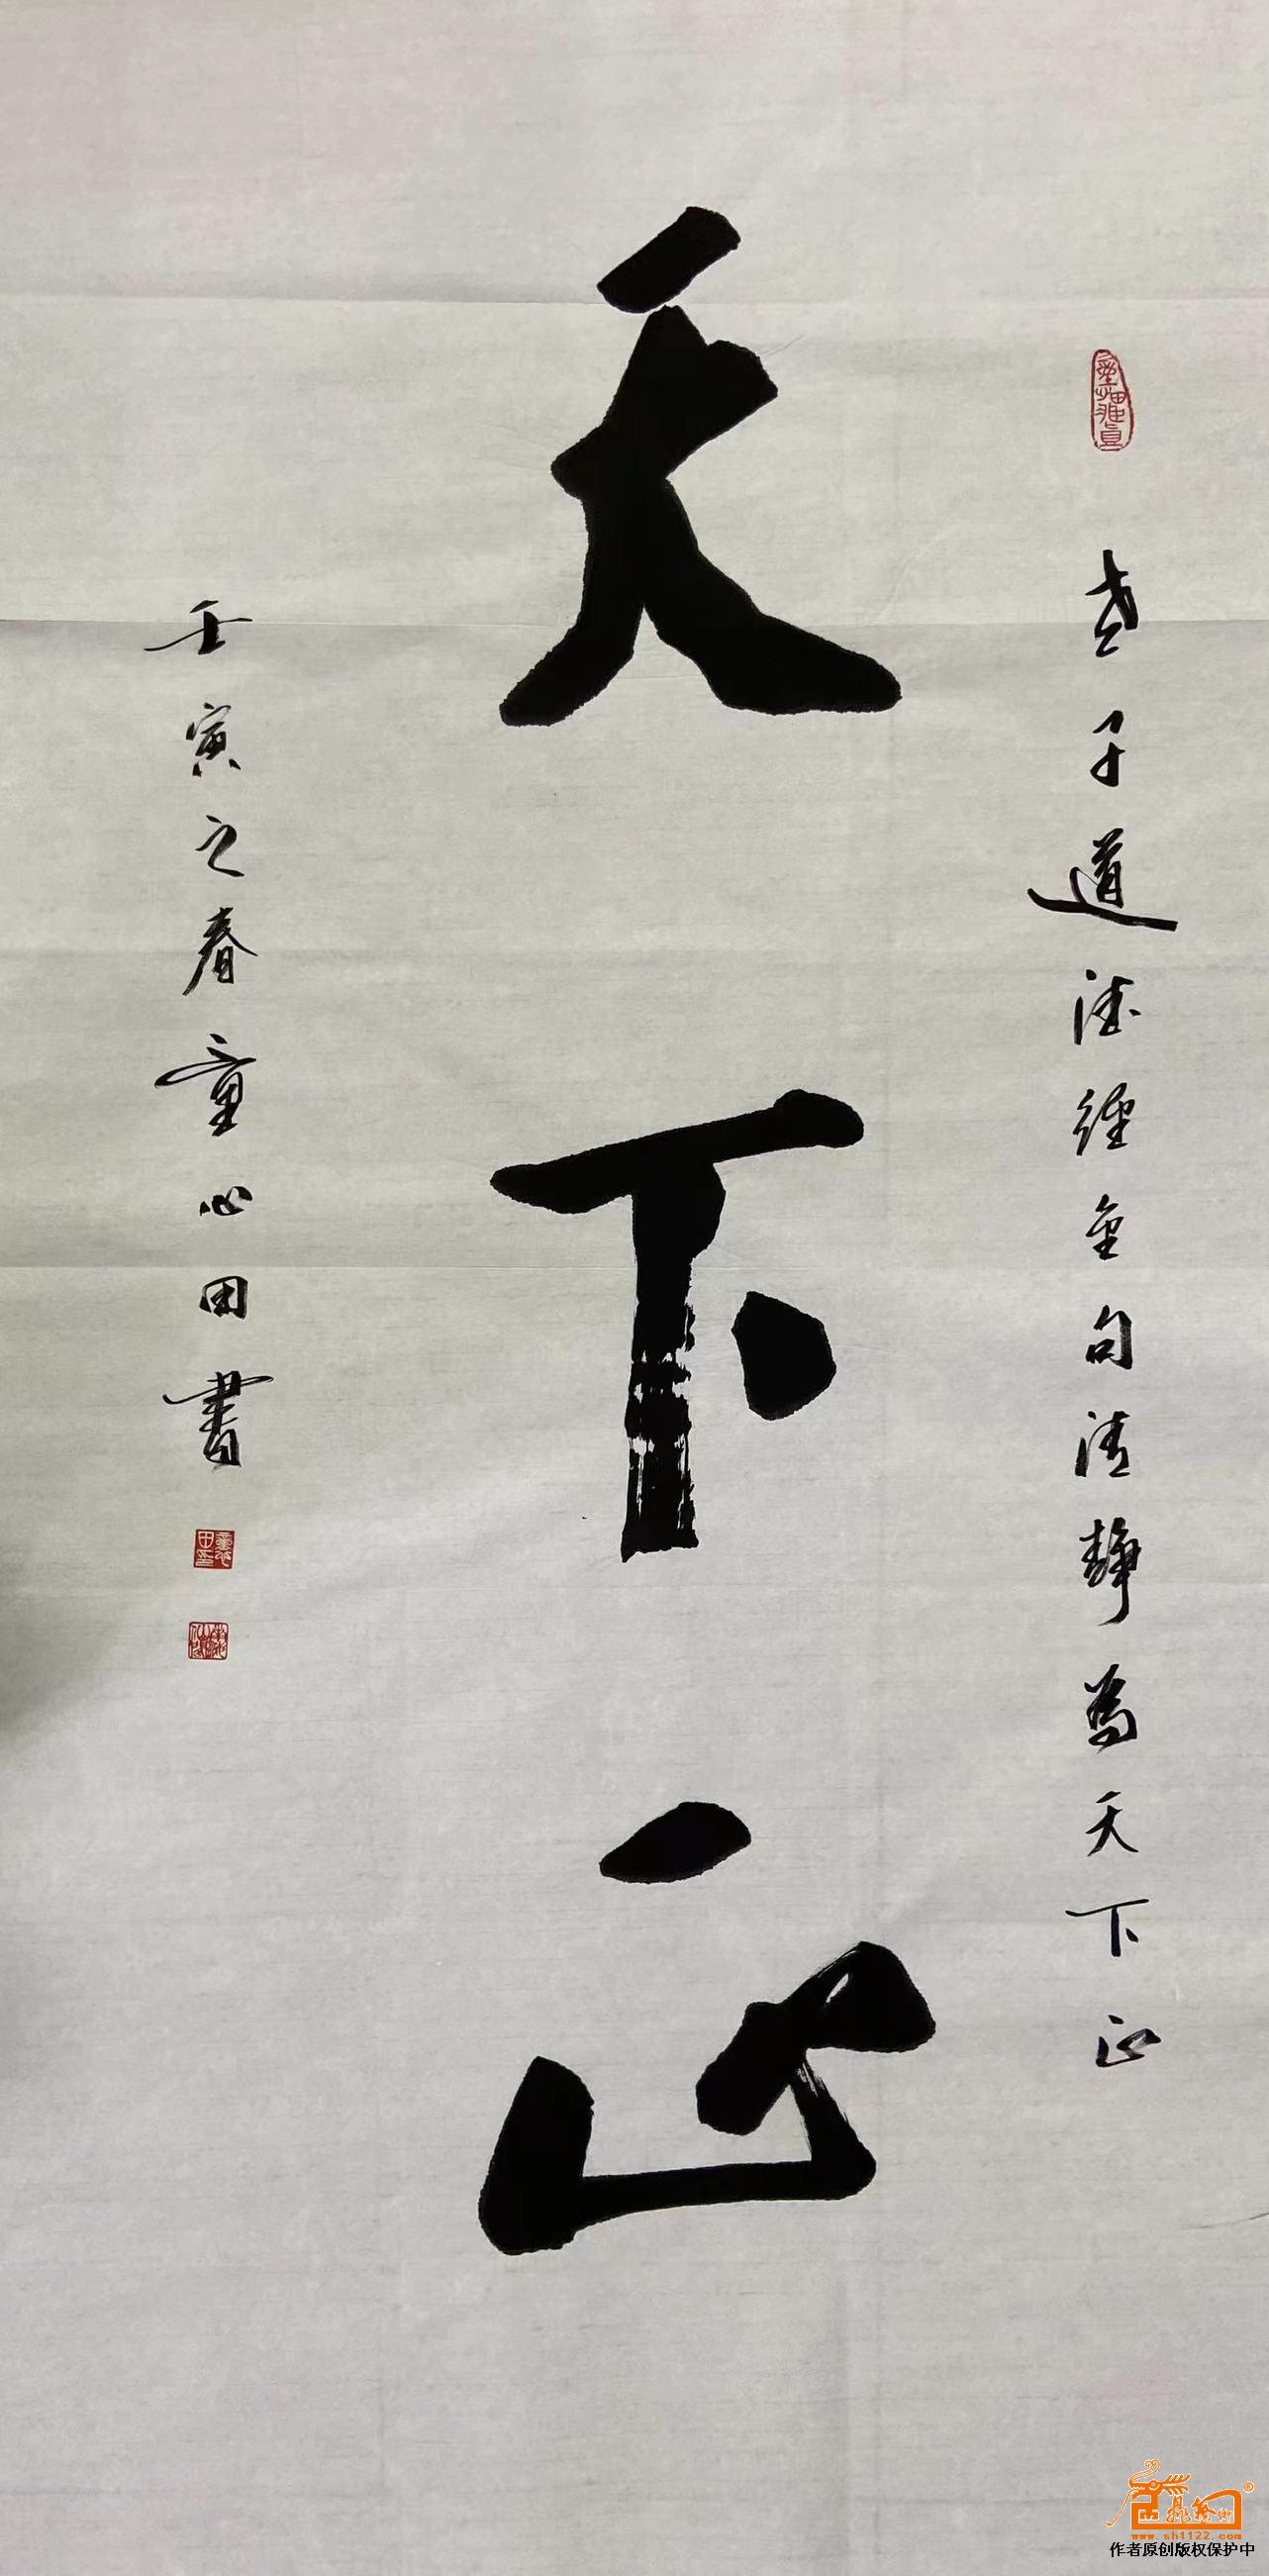 老子道德經金句清靜為天下正
天下正
壬寅之春童心田書
www.sh1122.com
作者原创版权保护中